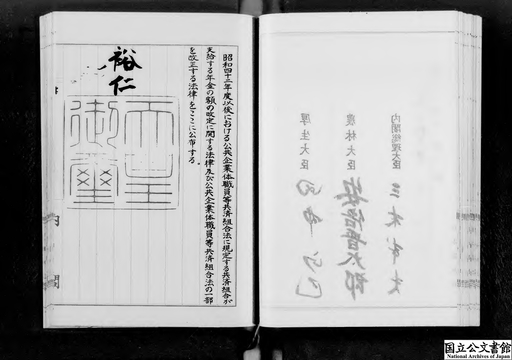 昭和四十三年度以後における公共企業体職員等共済組合法に規定する共済組合が
支給する年金の額の改定に関する法律及び公共企業体職員等共済組合法の一部
を改正する法律をここに公布する。
裕仁
天皇
御璽
内閣
内閣総理大臣
農林大臣
厚生大臣
国立公文書館
National Archives of Japan